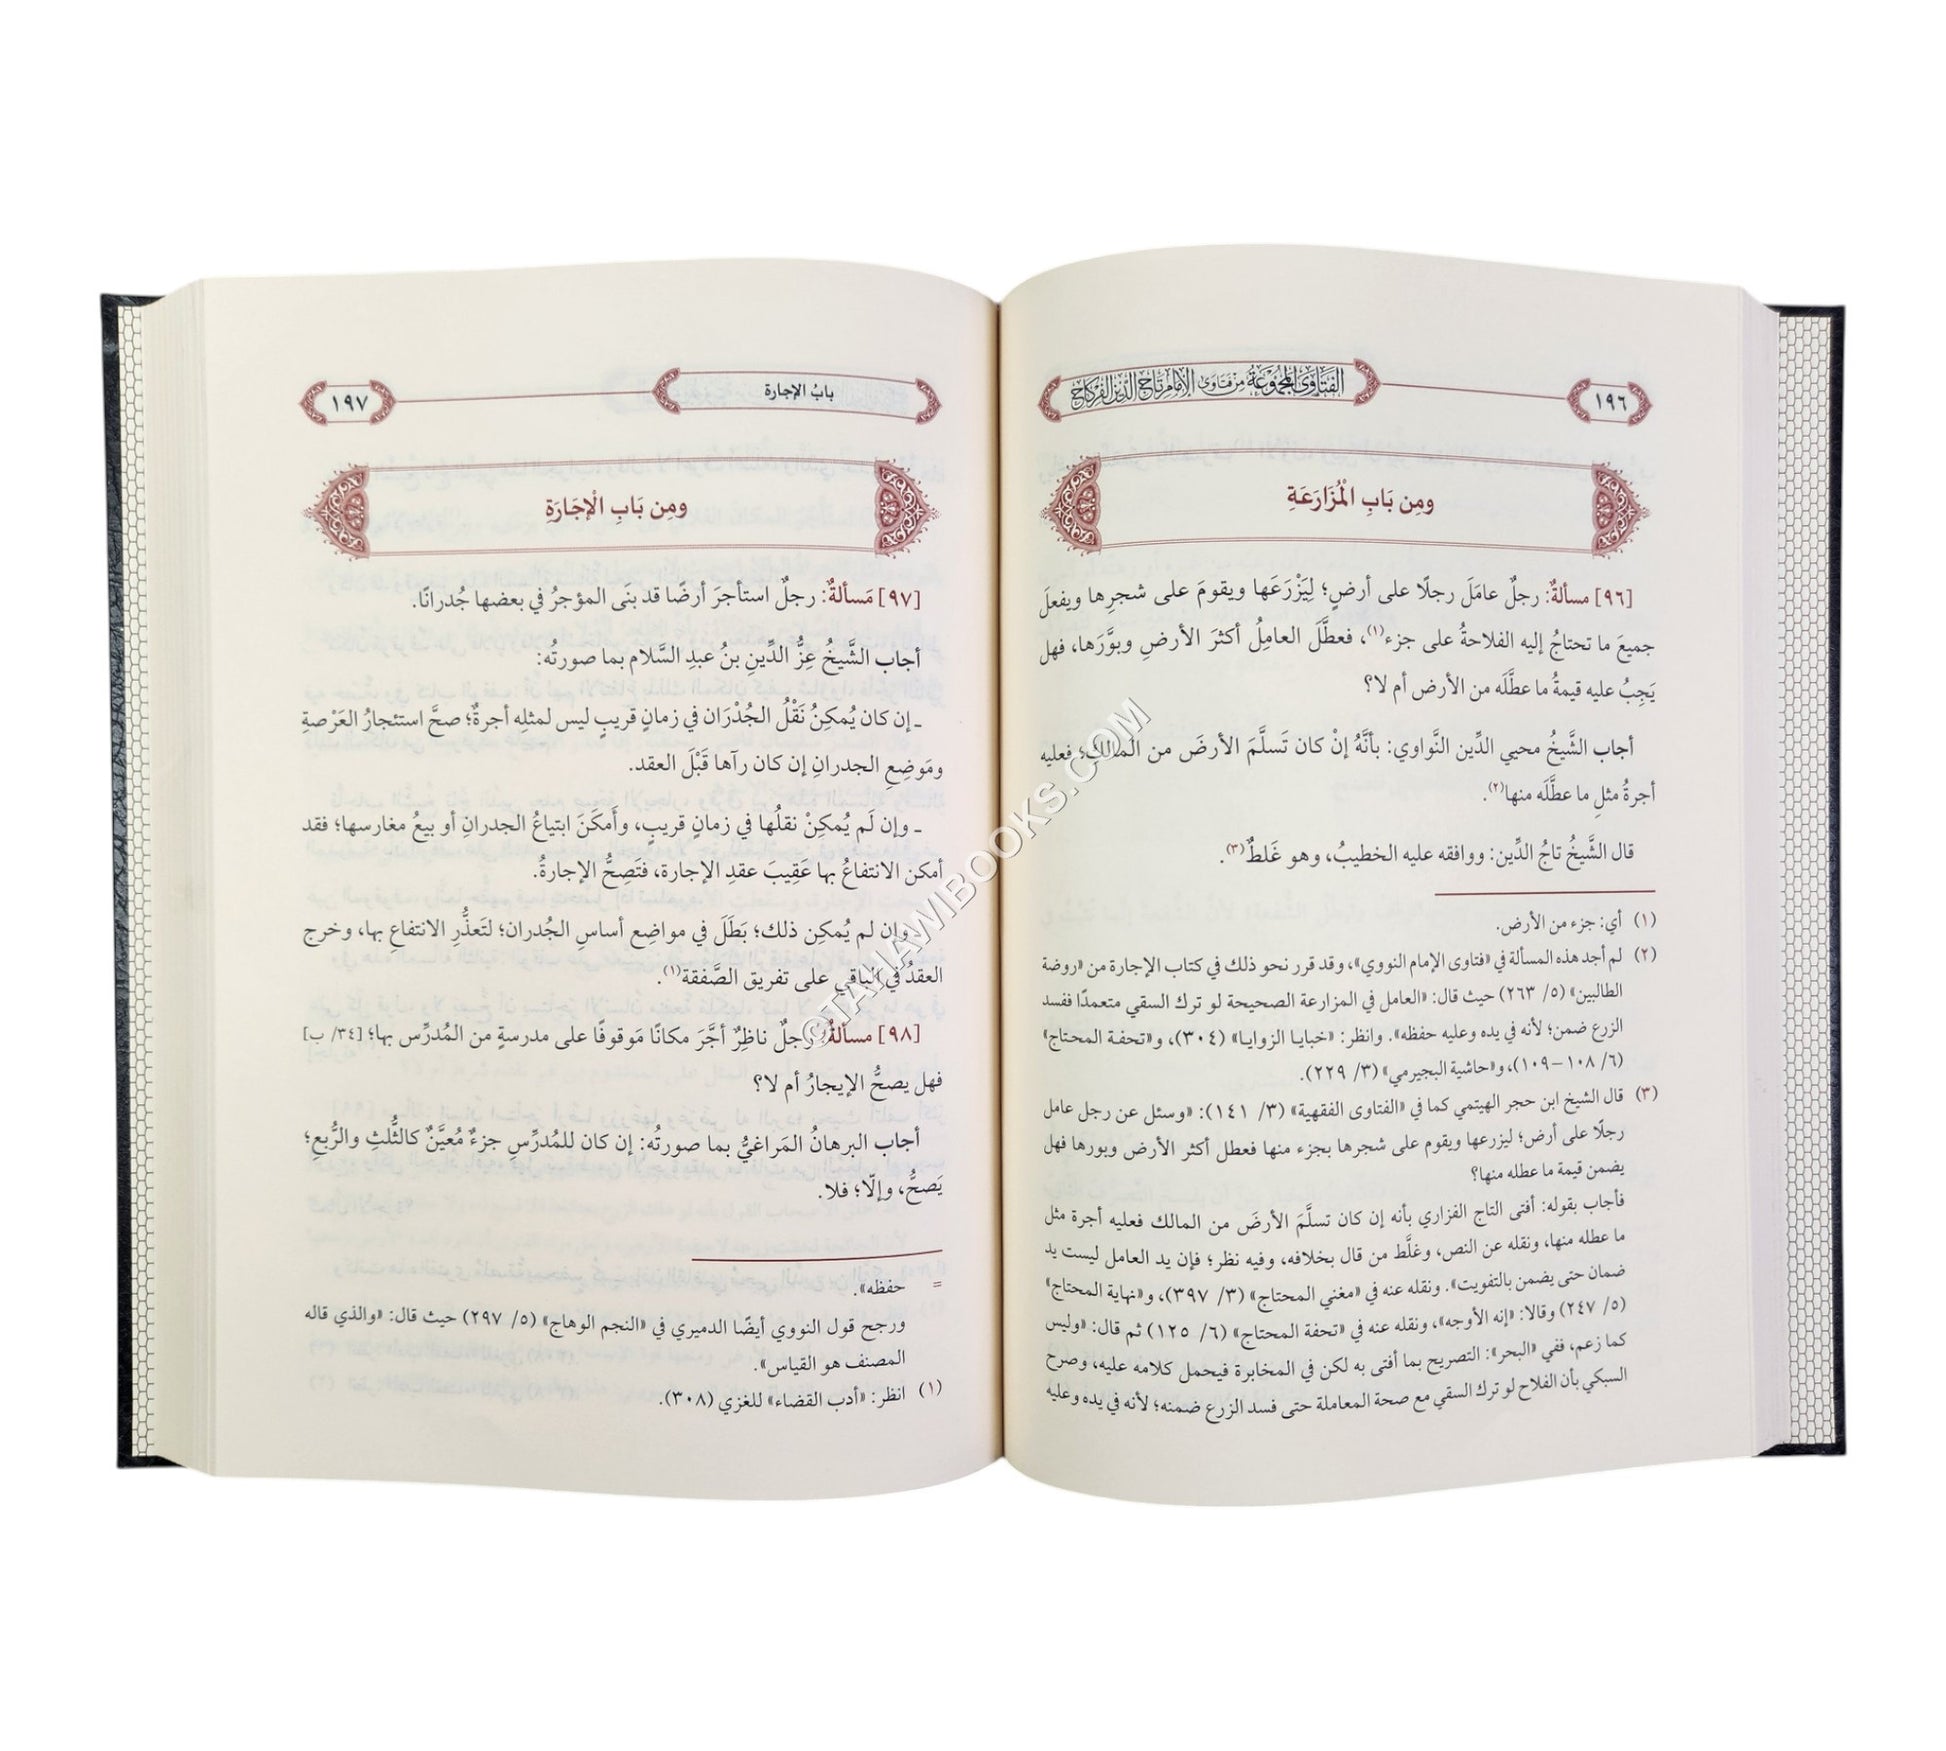 ١٩٦
الفتاوى المجموعة من فتاوى الإمام تاج الدين الفركاح
ومِن بَابِ الْمُزَارَعَةِ
[٩٦] مسألةٌ: رجلٌ عامَلَ رجلًا على أرضٍ؛ لِيَزْرَعَها ويقومَ على شجرِها ويفعلَ
جميعَ ما تحتاجُ إليه الفلاحةُ على جزء(١)، فعطَّلَ العامِلُ أكثرَ الأرضِ وبوَّرَها، فهل
يَجِبُ عليه قيمةُ ما عطَّلَه من الأرض أم لا؟
أجاب الشَّيخُ محيي الدِّين النَّواوي: بأنَّهُ إنْ كان تَسلَّمَ الأرضَ من المالكِ؛ فعليه
أجرةُ مثلِ ما عطَّلَه منها(٢).
قال الشَّيخُ تاجُ الدِّين: ووافقه عليه الخطيبُ، وهو غَلطٌ(٣).
(١) أي: جزء من الأرض.
(٢) لم أجد هذه المسألة في «فتاوى الإمام النووي»، وقد قرر نحو ذلك في كتاب الإجارة من «روضة
الطالبين» (٥/ ٢٦٣) حيث قال: «العامل في المزارعة الصحيحة لو ترك السقي متعمدًا ففسد
الزرع ضمن؛ لأنه في يده وعليه حفظه». وانظر: «خبايا الزوايا» (٣٠٤)، و«تحفة المحتاج»
(٦/ ١٠٨-١٠٩)، و«حاشية البجيرمي» (٣/ ٢٢٩).
(٣) قال الشيخ ابن حجر الهيتمي كما في «الفتاوى الفقهية» (٣/ ١٤١): «وسئل عن رجل عامل
رجلًا على أرض؛ ليزرعها ويقوم على شجرها بجزء منها فعطل أكثر الأرض وبورها فهل
يضمن قيمة ما عطله منها؟
فأجاب بقوله: أفتى التاج الفزاري بأنه إن كان تسلَّمَ الأرضَ من المالك فعليه أجرة مثل
ما عطله منها، ونقله عن النص، وغلَّط من قال بخلافه، وفيه نظر؛ فإن يد العامل ليست يد
ضمان حتى يضمن بالتفويت». ونقله عنه في «مغني المحتاج» (٣/ ٣٩٧)، و«نهاية المحتاج»
(٥/ ٢٤٧) وقالا: «إنه الأوجه»، ونقله عنه في «تحفة المحتاج» (٦/ ١٢٥) ثم قال: «وليس
كما زعم، ففي «البحر»: التصريح بما أفتى به لكن في المخابرة فيحمل كلامه عليه، وصرح
السبكي بأن الفلاح لو ترك السقي مع صحة المعاملة حتى فسد الزرع ضمنه؛ لأنه في يده وعليه
بابُ الإجارة
١٩٧
ومِن بَابِ الْإجَارَةِ
[٩٧] مَسألةٌ: رجلٌ استأجرَ أرضًا قد بنَى المؤجرُ في بعضها جُدرانًا.
أجاب الشَّيخُ عِزُّ الدِّينِ بنُ عبدِ السَّلام بما صورتُه:
ـ إن كان يُمكِنُ نَقْلُ الجُدْرَان في زمانٍ قريبٍ ليس لمثلِه أجرةٌ؛ صحَّ استئجارُ العَرْصةِ
ومَوضِعِ الجدرانِ إن كان رآها قَبْلَ العقد.
ـ وإن لَم يُمكِنْ نقلُها في زمانٍ قريبٍ، وأَمكَنَ ابتياعُ الجدرانِ أو بيعُ مغارسها؛ فقد
أمكن الانتفاعُ بها عَقِيبَ عقدِ الإجارة، فتَصِحُّ الإجارةُ.
ـ وإن لم يُمكِن ذلك؛ بَطَلَ في مواضِعِ أساسِ الجُدران؛ لتَعذُّرِ الانتفاعِ بها، وخرج
العقدُ في الباقي على تفريق الصَّفقة(١).
[٩٨] مسألةٌ: رجلٌ ناظِرٌ أجَّرَ مكانًا مَوقوفًا على مدرسةٍ من المُدرِّس بها؛ [٣٤/ ب]
فهل يصحُّ الإيجارُ أم لا؟
أجاب البرهانُ المَراغيُّ بما صورتُه: إن كان للمُدرِّسِ جزءٌ مُعيَّنٌ كالثُّلثِ والرُّبعِ؛
يَصحُّ، وإلّا؛ فلا.
= حفظه».
ورجح قول النووي أيضًا الدميري في «النجم الوهاج» (٥/ ٢٩٧) حيث قال: «والذي قاله
المصنف هو القياس».
(١) انظر: «أدب القضاء» للغزي (٣٠٨).
©TAHAWIBOOKS.COM